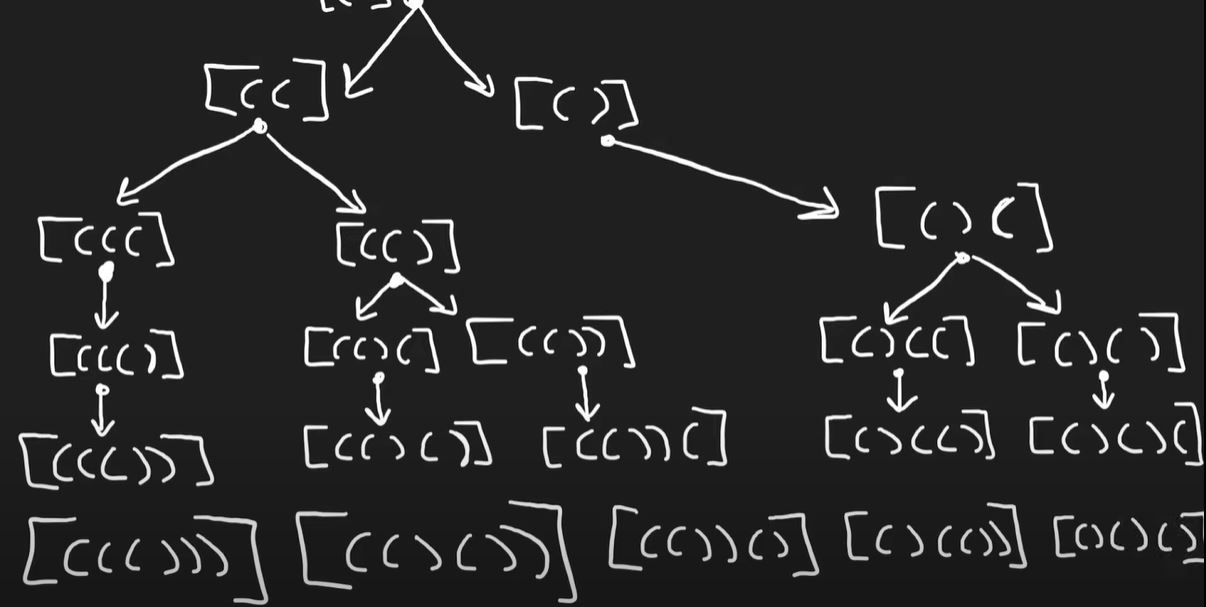 [(
[((] [()]
[(((] [(()] [()(]
[((()] [(()(] [(())] [()((] [()()]
[((())] [(()()] [(())(] [()(()] [()()(]
[((()))] [(()())] [(())()] [()(())] [()()()]